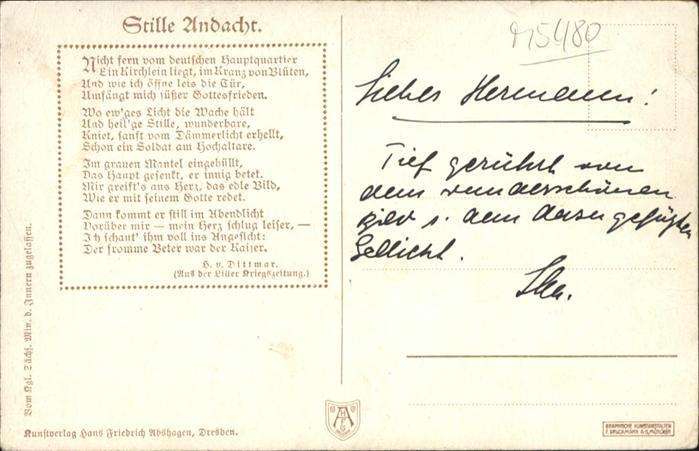 Stille Andacht.
Nicht fern vom deutschen Hauptquartier
Ein Kirchlein liegt, im Kranz von Blüten,
Und wie ich öffne leis die Tür,
Umfängt mich süßer Gottesfrieden.
Wo ew'ges Licht die Wache hält
Und heil'ge Stille, wunderbare,
Kniet, sanft vom Dämmerlicht erhellt,
Schon ein Soldat am Hochaltare.
Im grauen Mantel eingehüllt,
Das Haupt gesenkt, er innig betet.
Mir greift's ans Herz, das edle Bild,
Wie er mit seinem Gotte redet.
Dann kommt er still im Abendlicht
Vorüber mir — mein Herz schlug leiser, —
Ich schaut' ihm voll ins Angesicht:
Der fromme Beter war der Kaiser.
H. v. Dittmar.
(Aus der Liller Kriegszeitung.)
Vom Kgl. Sächs. Min. d. Innern zugelassen.
Kunstverlag Hans Friedrich Abshagen, Dresden.
15480
Lieber Hermann!
Tief gerührt von
dem wunderschönen
Bild u. dem dazugefügten
Gedicht.
GRAPHISCHE KUNSTANSTALTEN
F. BRUCKMANN A.G. MÜNCHEN